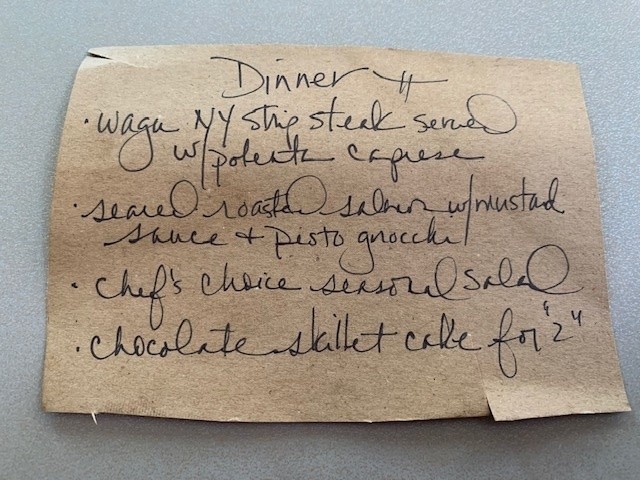 Dinner #
• wagu NY strip steak served
w/ polenta caprese
• seared roasted salmon w/ mustard
sauce + pesto gnocchi
• chef's choice seasonal salad
• chocolate skillet cake for "2"